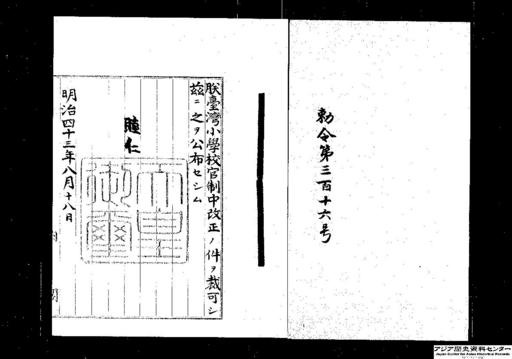 勅令第三百十六号
朕臺灣小學校官制中改正ノ件ヲ裁可シ
茲ニ之ヲ公布セシム
睦仁
天皇御璽
明治四十三年八月十八日
内閣
アジア歴史資料センター
Japan Center for Asian Historical Records